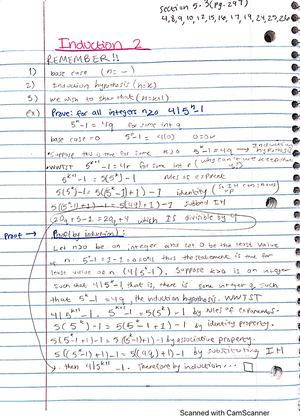 section 5.3 (pg. 247)
4,8,9,10,12,15,16,17,19,24,25,26
Induction 2
REMEMBER!!
1) base case (n= —)
2) Induction hypothesis (n=k)
3) we wish to show that (n=k+1)
(ex) Prove: for all integers n≥0 4|5ⁿ-1
5ⁿ-1 = 4q for some int q
base case = 0 5⁰-1 = 4(0) 0=0✓
Suppose this is true for some k≥0 5ᵏ-1=4q → Induction hypothesis
WWTST 5ᵏ⁺¹-1=4r for some int r
5ᵏ⁺¹-1 = 5(5ᵏ)-1 rules of exponent
5(5ᵏ)-1 = 5(5ᵏ-1+1)-1 identity
5((5ᵏ-1)+1)-1 = 5(4q+1)-1 subbed IH
20q+5-1 = 20q+4 which IS divisible by 4
Proof → Proof (by induction):
Let n≥0 be an integer and let 0 be the least value
of n. 5⁰-1=1-1=0=0·4 thus the statement is true for
least value of n (4|5ⁿ-1). Suppose k≥0 is an integer
such that 4|5ᵏ-1, that is, there is some integer q, such
that 5ᵏ-1=4q, the induction hypothesis. WWTST
4|5ᵏ⁺¹-1. 5ᵏ⁺¹-1=5(5ᵏ)-1 by rules of exponents.
5(5ᵏ)-1=5(5ᵏ-1+1)-1 by identity property.
5(5ᵏ-1+1)-1=5((5ᵏ-1)+1)-1 by associative property.
5((5ᵏ-1)+1)-1=5((4q)+1)-1 by substituting IH
. then 4|5ᵏ⁺¹-1. Therefore by induction... □
Scanned with CamScanner